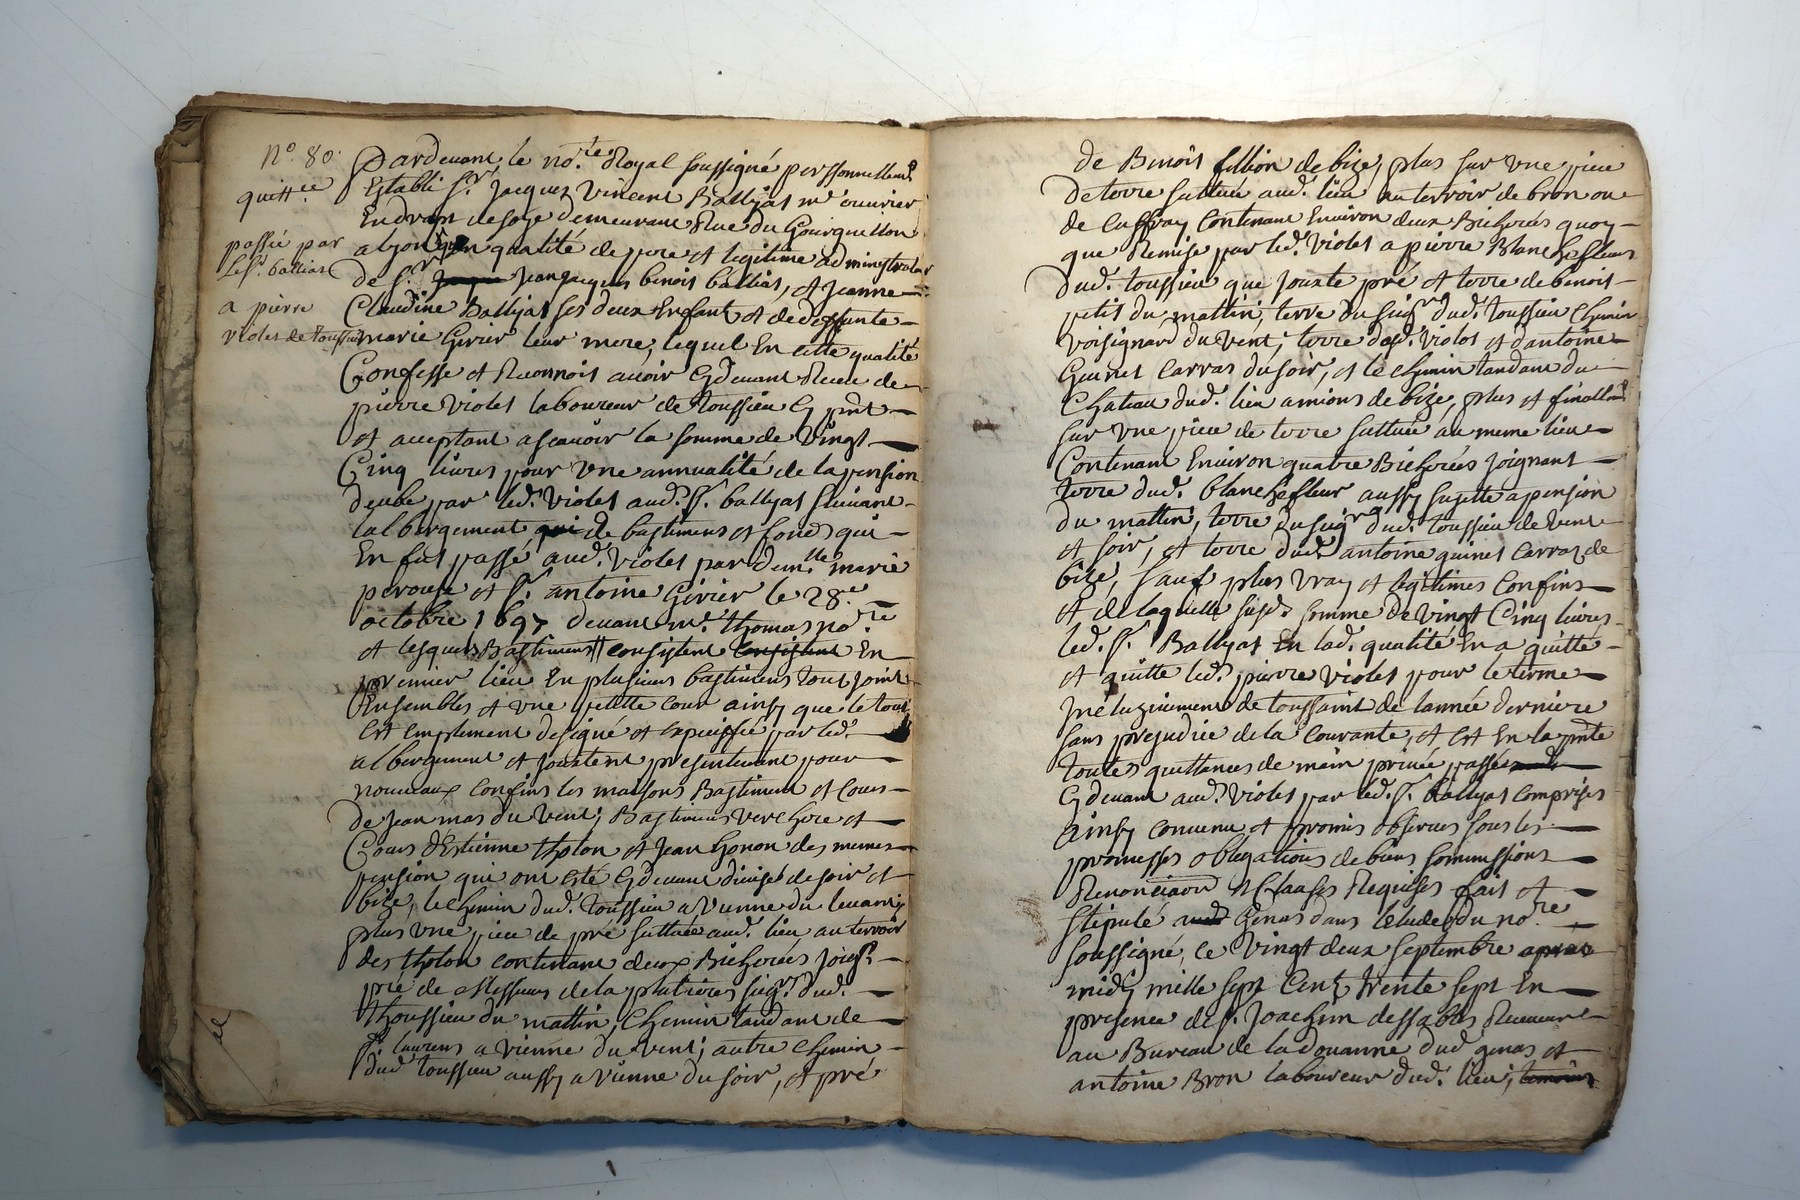 N.° 80.
quitt.ce
passée par
le s.r balliat
a pierre
violet de toussieu
Pardevant le no.re Royal soussigné perssonnellem.t
Establi s.r Jacques Vincent Ballyat m.e ouvrier
En drap de soye demeurant Rue du Gourguillon
a lyon en qualité de pere et legitime administrateur
de s.r Jean jacques benoit balliat, et Jeanne
Claudine Ballyat ses deux Enfants et de deffunte
marie Girier leur mere, lequel En cette qualité
Confesse et Reconnoit avoir Cydevant Receu de
pierre violet laboureur de toussieu Cy pnt
et acceptant ascavoir la somme de vingt
Cinq livres pour une annualité de la pension
deube par led. violet aud. s.r ballyat suivant
lalbergement de bastimens et fonds qui
En fut passé aud. violet par dem.lle marie
perouse et s.r antoine Girier le 28.e
octobre 1697 devant m.e thomas no.re
et lesquels Bastimens consistent consistent En
premier lieu En plusieurs bastimens tout joint
Ensembles et une petitte cour ainsy que le tout
Est emplement designé et expeciffié par led.
albergement et jouxtent presentement pour
nouveaux confins les maisons Bastiment et Cours
de Jean mas du vent, Bastimens verchere et
Cours d'Estienne tholon et Jean Gonon des memes
pension qui ont esté Cydevant divisés de soir et
bize, le chemin dud. toussieu a vienne du levant,
plus une piece de pré scittuée aud. lieu au terroir
des tholon contenant deux Bicherées joig.t
pré de Messieurs de la platieres seig.rs dud.
thoussieu du mattin, Chemin tandant de
s.t laurens a vienne du vent; autre chemin
dud. toussieu aussy a vienne du soir, et pré
de Benoit fillion de bize, plus sur une piece
de terre scittuée aud. lieu au terroir de bron ou
de cussray contenant Environ deux Bicherées quoy
que Remise par led. violet a pierre Blancheffleur
dud. toussieu que jouxte pré et terre de benoit
petit du mattin, terre du seig.r dud. toussieu chemin
voisignard du vent, terre dud. violet et d'antoine
Guinet carraz du soir, et le chemin tandant du
Chateau dud. lieu a mions de bize, plus et finallem.t
sur une piece de terre scittuée au meme lieu
Contenant Environ quatre Bicherées joignant
terre dud. blancheffleur aussy sujette a pension
du mattin, terre du seig.r dud. toussieu de vent
et soir, et terre dud. antoine guinet carraz de
bize, sauf plus vray et legitimes confins
et de laquelle susd. somme de vingt Cinq livres
led. s.r Ballyat En lad. qualité En a quitté
et quitte led. pierre violet pour le terme
de toussaint de lannée derniere
sans prejudice de la courante, et est En la pnte
toutes quittances de main privée passées
Cydevant aud. violet par led. s.r Ballyat comprises
ainsy convenu et promis observer sous les
promesses obligations de biens soumissions
Renonciaon et Clauses Requises fait et
stipulé Genas dans letude du no.re
soussigné, ce vingt deux septembre apres
midy mille sept Cent trente sept En
presence de s.r Joachim dessables Receveur
au Bureau de la douanne dud. genas et
antoine Bron laboureur dud. lieu, temoins